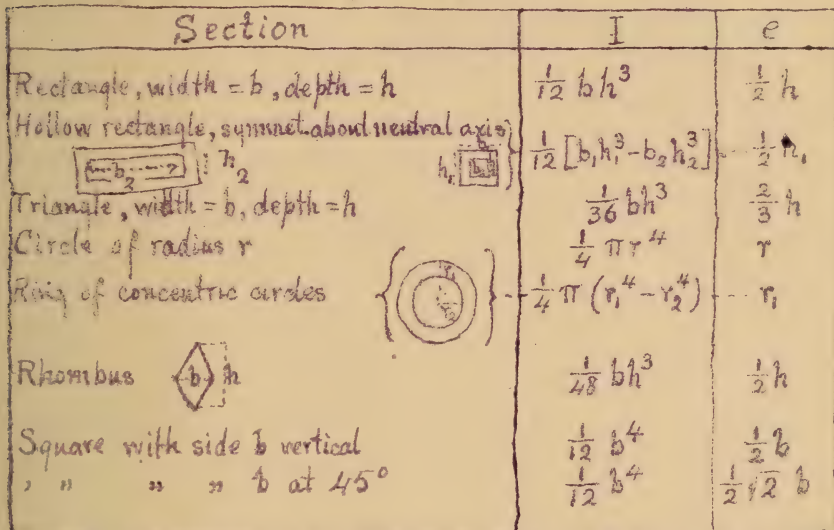 Section I e
Rectangle, width = b, depth = h 1/12 bh³ 1/2 h
Hollow rectangle, symmet. about neutral axis
b₂ h₂ h₁ 1/12 [b₁h₁³-b₂h₂³] 1/2 h₁
Triangle, width = b, depth = h 1/36 bh³ 2/3 h
Circle of radius r 1/4 πr⁴ r
Ring of concentric circles r₁ r₂ 1/4 π (r₁⁴-r₂⁴) r₁
Rhombus b h 1/48 bh³ 1/2 h
Square with side b vertical 1/12 b⁴ 1/2 b
" " " " b at 45° 1/12 b⁴ 1/2 √2 b